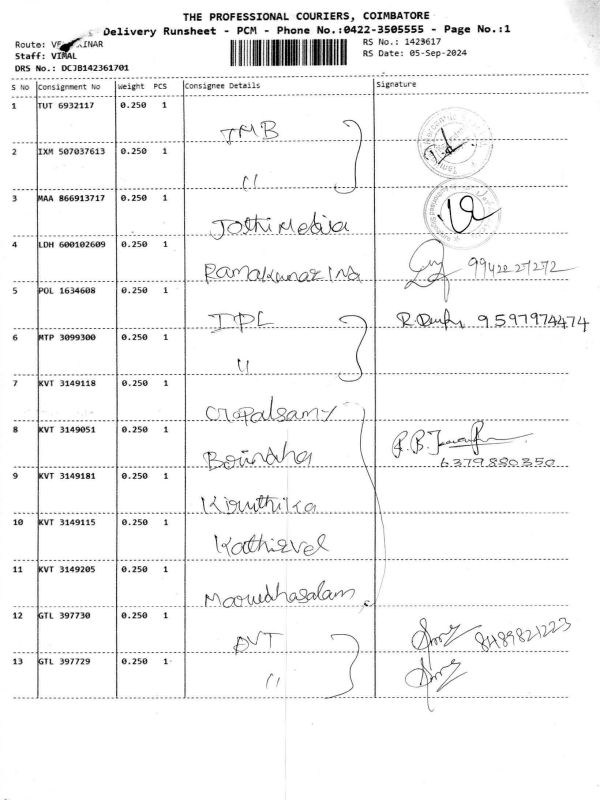 THE PROFESSIONAL COURIERS, COIMBATORE
Delivery Runsheet - PCM - Phone No.:0422-3505555 - Page No.:1
Route:
Staff: VIMAL
DRS No.: DCJB142361701
RS No.: 1423617
RS Date: 05-Sep-2024
S No Consignment No Weight PCS Consignee Details Signature
1 TUT 6932117 0.250 1 TMB
2 IXM 507037613 0.250 1 "
3 MAA 866913717 0.250 1 Jothi Media
4 LDH 600102609 0.250 1 Ramakumar Ind 9942227272
5 POL 1634608 0.250 1 IPL 9597974474
6 MTP 3099300 0.250 1 "
7 KVT 3149118 0.250 1 Gopalsamy
8 KVT 3149051 0.250 1 6379880350
9 KVT 3149181 0.250 1 Kiruthika
10 KVT 3149115 0.250 1 Kathirvel
11 KVT 3149205 0.250 1
12 GTL 397730 0.250 1 AVT 8489821223
13 GTL 397729 0.250 1 "